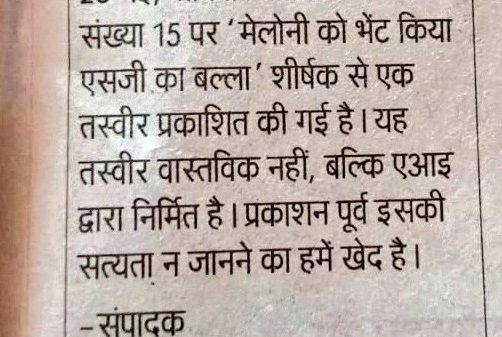 संख्या 15 पर ‘मेलोनी को भेंट किया
एसजी का बल्ला’ शीर्षक से एक
तस्वीर प्रकाशित की गई है। यह
तस्वीर वास्तविक नहीं, बल्कि एआइ
द्वारा निर्मित है। प्रकाशन पूर्व इसकी
सत्यता न जानने का हमें खेद है।
–संपादक